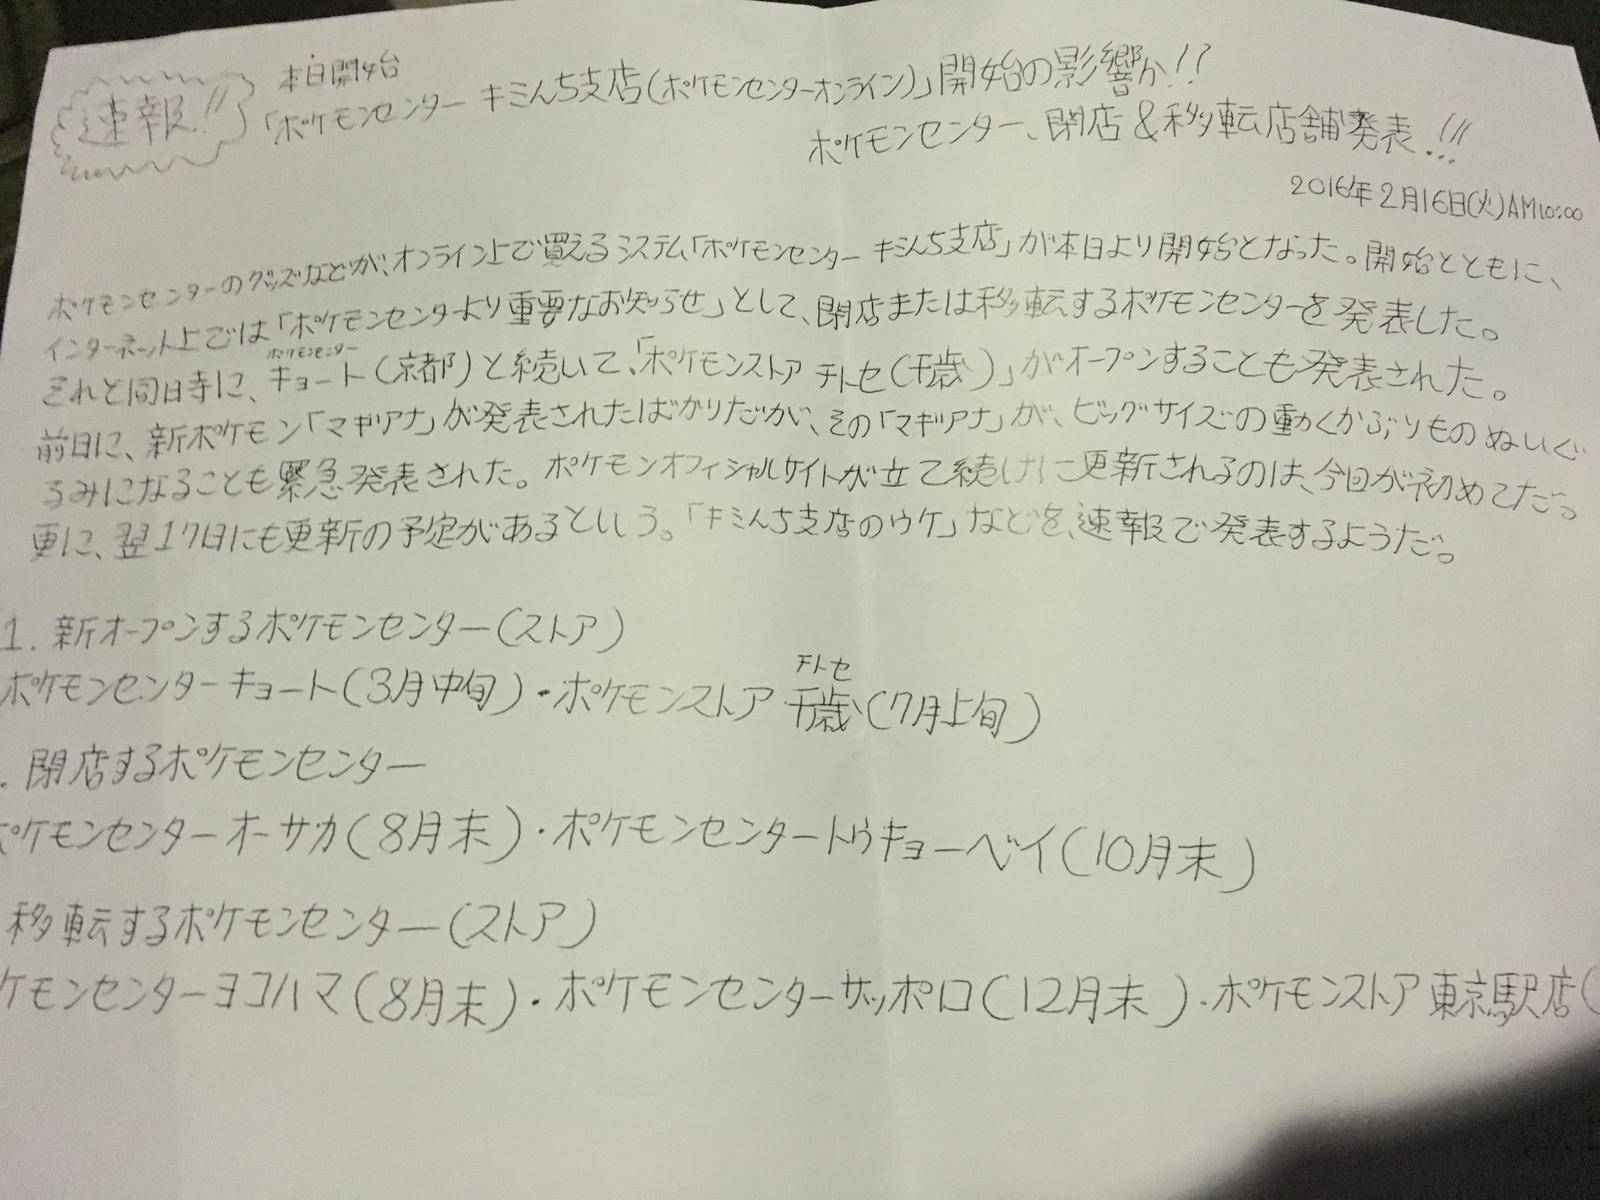 速報!!
本日開始
「ポケモンセンター キミんち支店(ポケモンセンターオンライン)」開始の影響か!?
ポケモンセンター、閉店&移転店舗発表!!!
2016年2月16日(火)AM10:00
ポケモンセンターのグッズなどが、オンライン上で買えるシステム「ポケモンセンター キミんち支店」が本日より開始となった。開始とともに、
インターネット上では「ポケモンセンターより重要なお知らせ」として、閉店または移転するポケモンセンターを発表した。
ポケモンセンター
それと同時に、キョート(京都)と続いて、「ポケモンストア チトセ(千歳)」がオープンすることも発表された。
前日に、新ポケモン「マギアナ」が発表されたばかりだが、その「マギアナ」が、ビッグサイズの動くかぶりものぬいぐ
るみになることも緊急発表された。ポケモンオフィシャルサイトが立て続けに更新されるのは、今回が初めてだ。
更に、翌17日にも更新の予定があるという。「キミんち支店のウケ」などを、速報で発表するようだ。
1. 新オープンするポケモンセンター(ストア)
チトセ
ポケモンセンターキョート(3月中旬)・ポケモンストア 千歳(7月上旬)
. 閉店するポケモンセンター
ポケモンセンターオーサカ(8月末)・ポケモンセンタートウキョーベイ(10月末)
移転するポケモンセンター(ストア)
ケモンセンターヨコハマ(8月末)・ポケモンセンターサッポロ(12月末)・ポケモンストア 東京駅店(